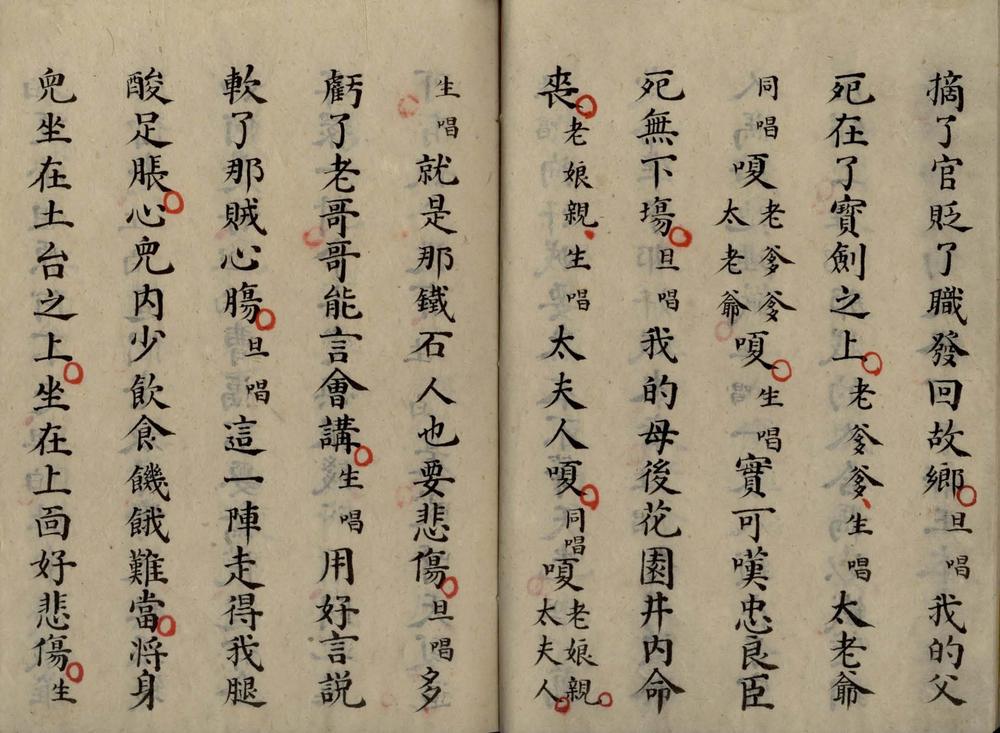 摘了官貶了職發回故鄉旦唱我的父
死在了寳劍之上老爹爹生唱太老爺
同唱嗄老爹爹太老爺嗄生唱實可嘆忠良臣
死無下塲旦唱我的母後花園井内命
丧老娘親生唱太夫人嗄同唱嗄老娘親太夫人
生唱就是那鐵石人也要悲傷旦唱多
虧了老哥哥能言會講生唱用好言説
軟了那賊心膓旦唱這一陣走得我腿
酸足脹心兒内少飲食饑餓難當將身
兒坐在土台之上坐在上面好悲傷生